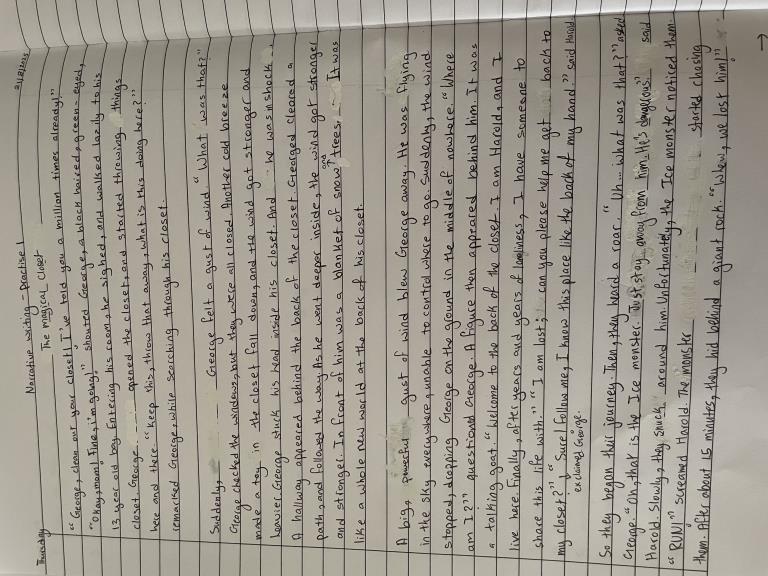 Thursday
21/8/2025
Narrative writing - Practise 1
The magical closet
"George, clean out your closet! I've told you a million times already!"
"Okay, mom! Fine, i'm going!" shouted George, a black haired, green-eyed,
13 year old boy. Entering his room, he sighed, and walked lazily to his
closet. George opened the closet, and started throwing things
here and there. "Keep this, throw that away, what is this doing here?"
remarked George, while searching through his closet.
Suddenly, George felt a gust of wind. "What was that?"
George checked the windows, but they were all closed. Another cold breeze
made a toy in the closet fall down, and the wind got stronger and
heavier. George stuck his head inside his closet. And he was in shock.
A hallway appeared behind the back of the closet. Georged cleared a
path, and followed the way. As he went deeper inside, the wind got stronger
and stronger. In front of him was a blanket of snow and trees. It was
like a whole new world at the back of his closet.
A big, powerful gust of wind blew George away. He was flying
in the sky everywhere, unable to control where to go. Suddenly, the wind
stopped, dropping George on the ground in the middle of nowhere. "Where
am I?" questioned George. A figure then appeared behind him. It was
a talking goat. "Welcome to the back of the closet. I am Harold, and I
live here. Finally, after years and years of loneliness, I have someone to
share this life with." "I am lost; can you please help me get back to
my closet?" exclaimed George. "Sure! Follow me, I know this place like the back of my hand." said Harold.
So they began their journey. Then, they heard a roar. "Uh... what was that?" asked
George. "Oh, that is the Ice monster. Just stay away from him. He's dangerous." said
Harold. Slowly, they snuck around him. Unfortunately, the Ice monster noticed them.
"RUN!" screamed Harold. The monster started chasing
them. After about 15 minutes, they hid behind a giant rock. "Whew, we lost him!"
→